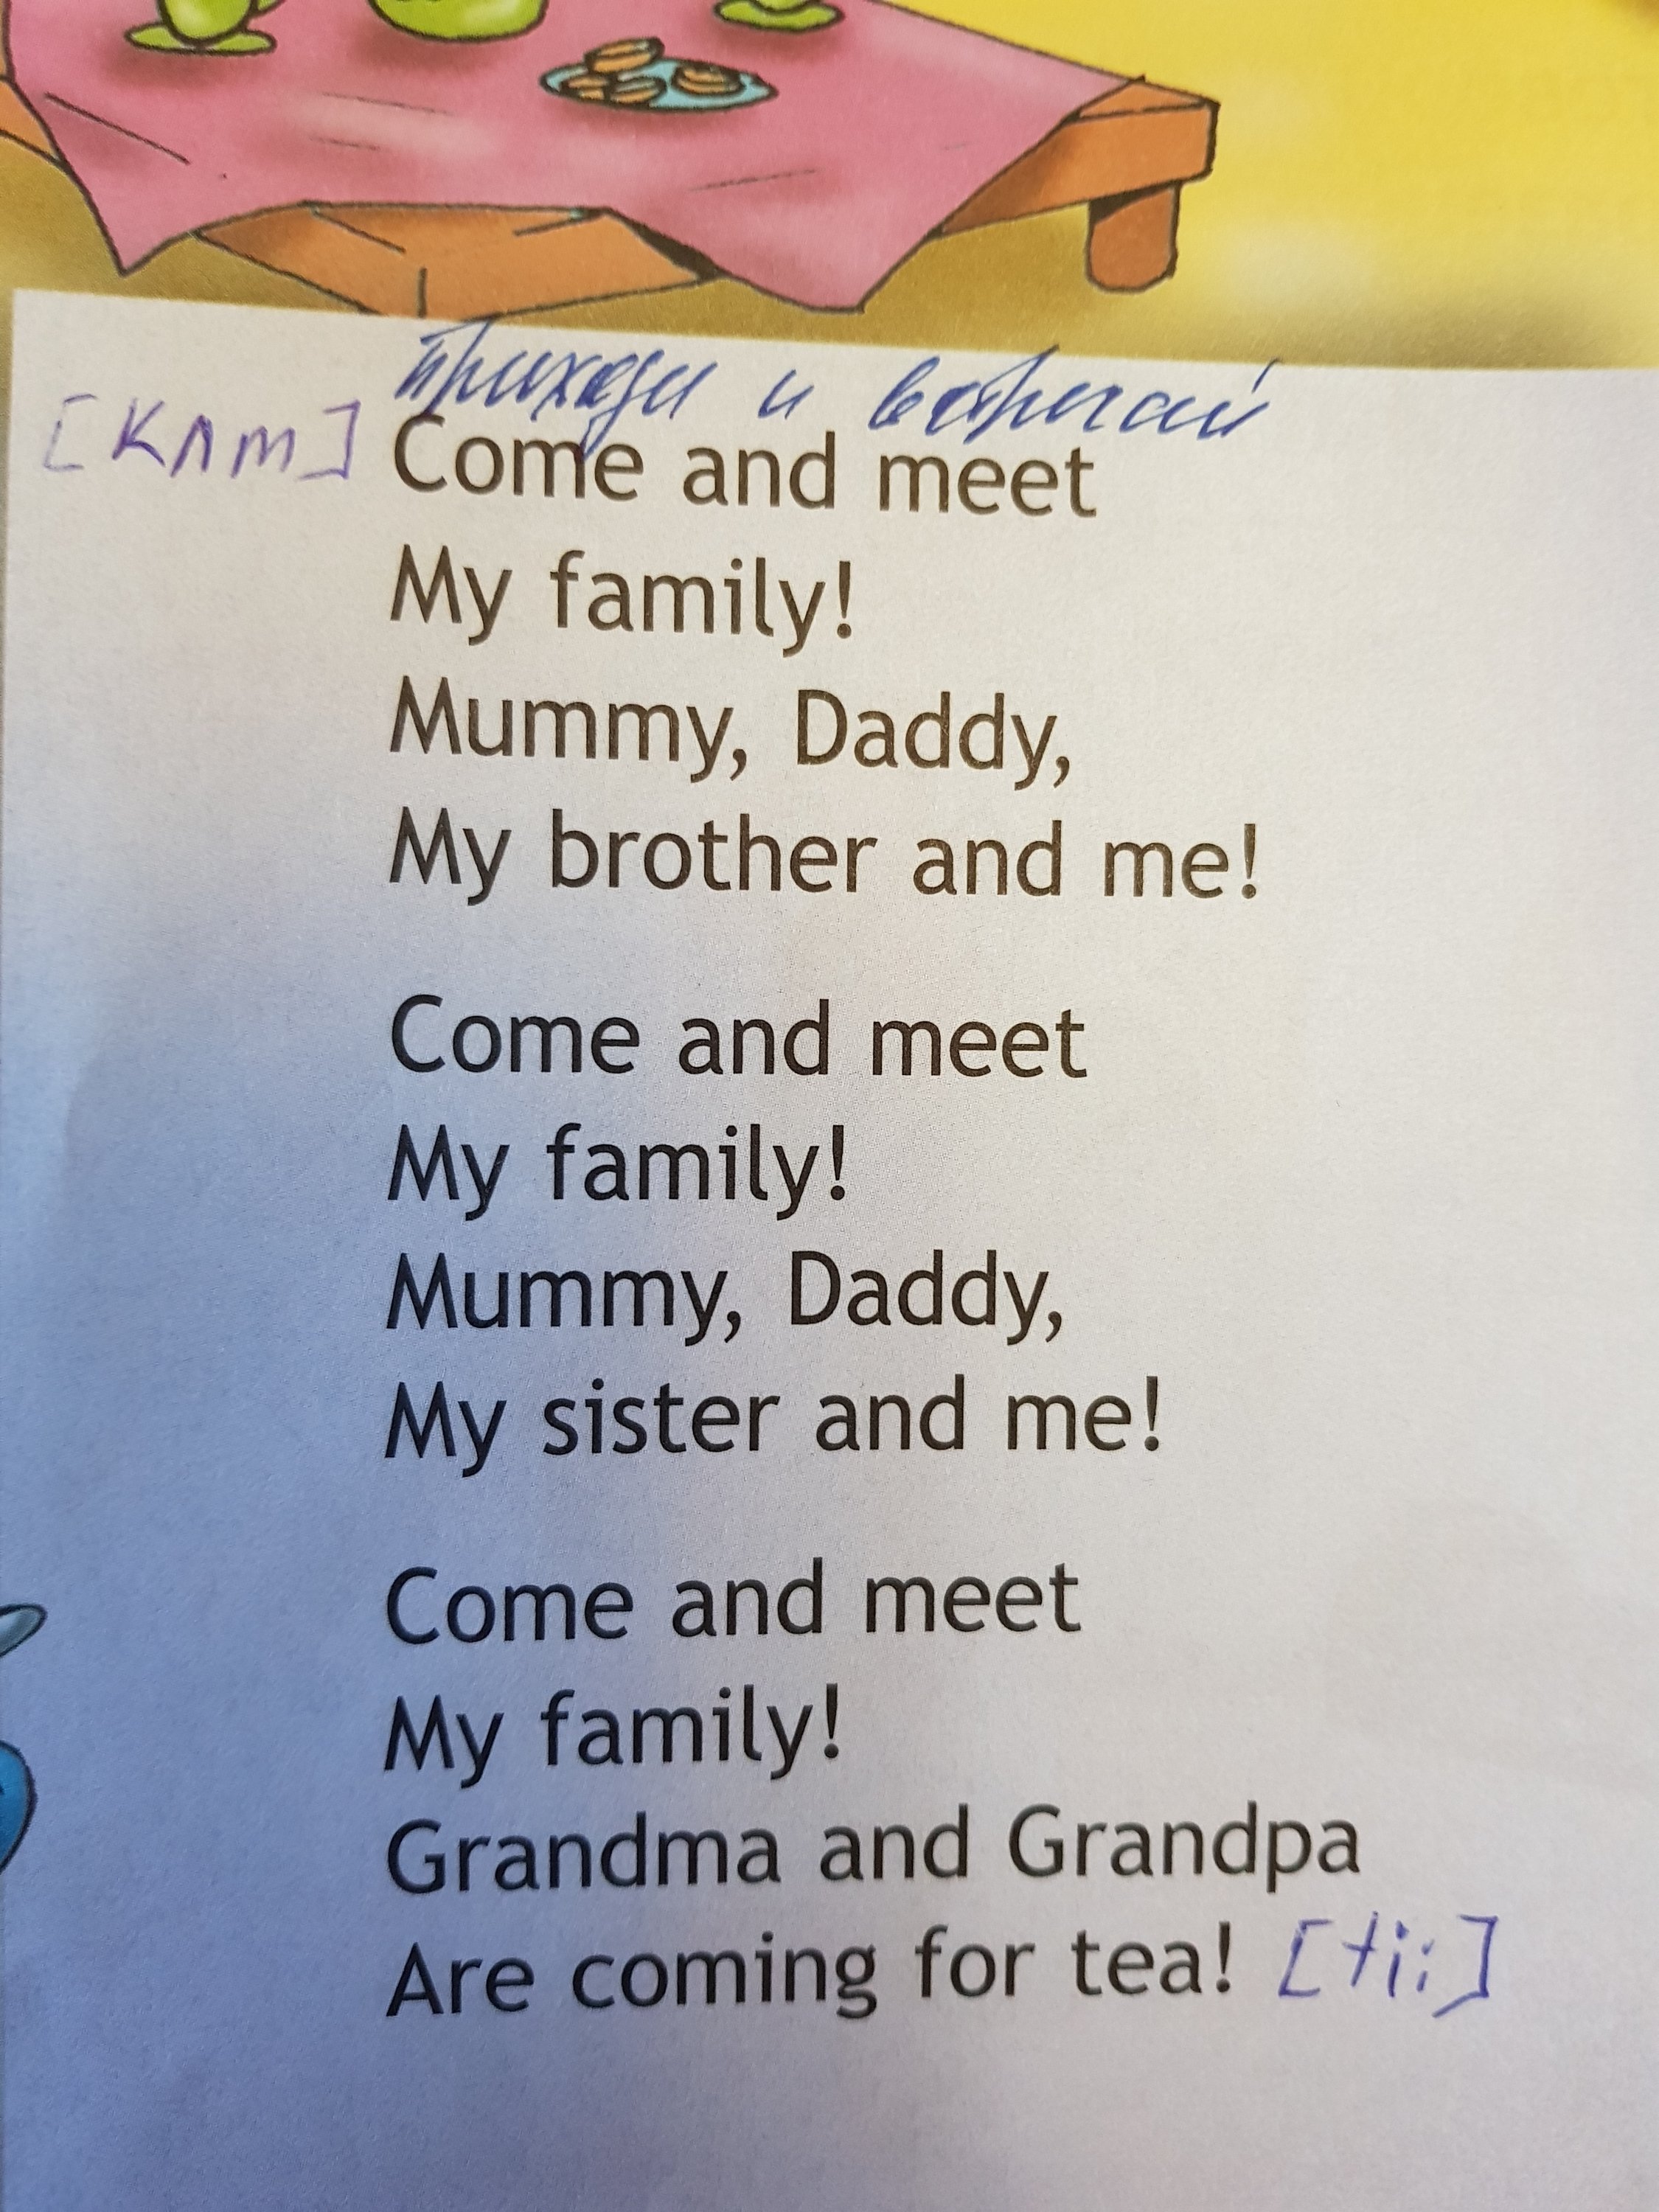 приходи и встречай
[kʌm] Come and meet
My family!
Mummy, Daddy,
My brother and me!
Come and meet
My family!
Mummy, Daddy,
My sister and me!
Come and meet
My family!
Grandma and Grandpa
Are coming for tea! [ti:]